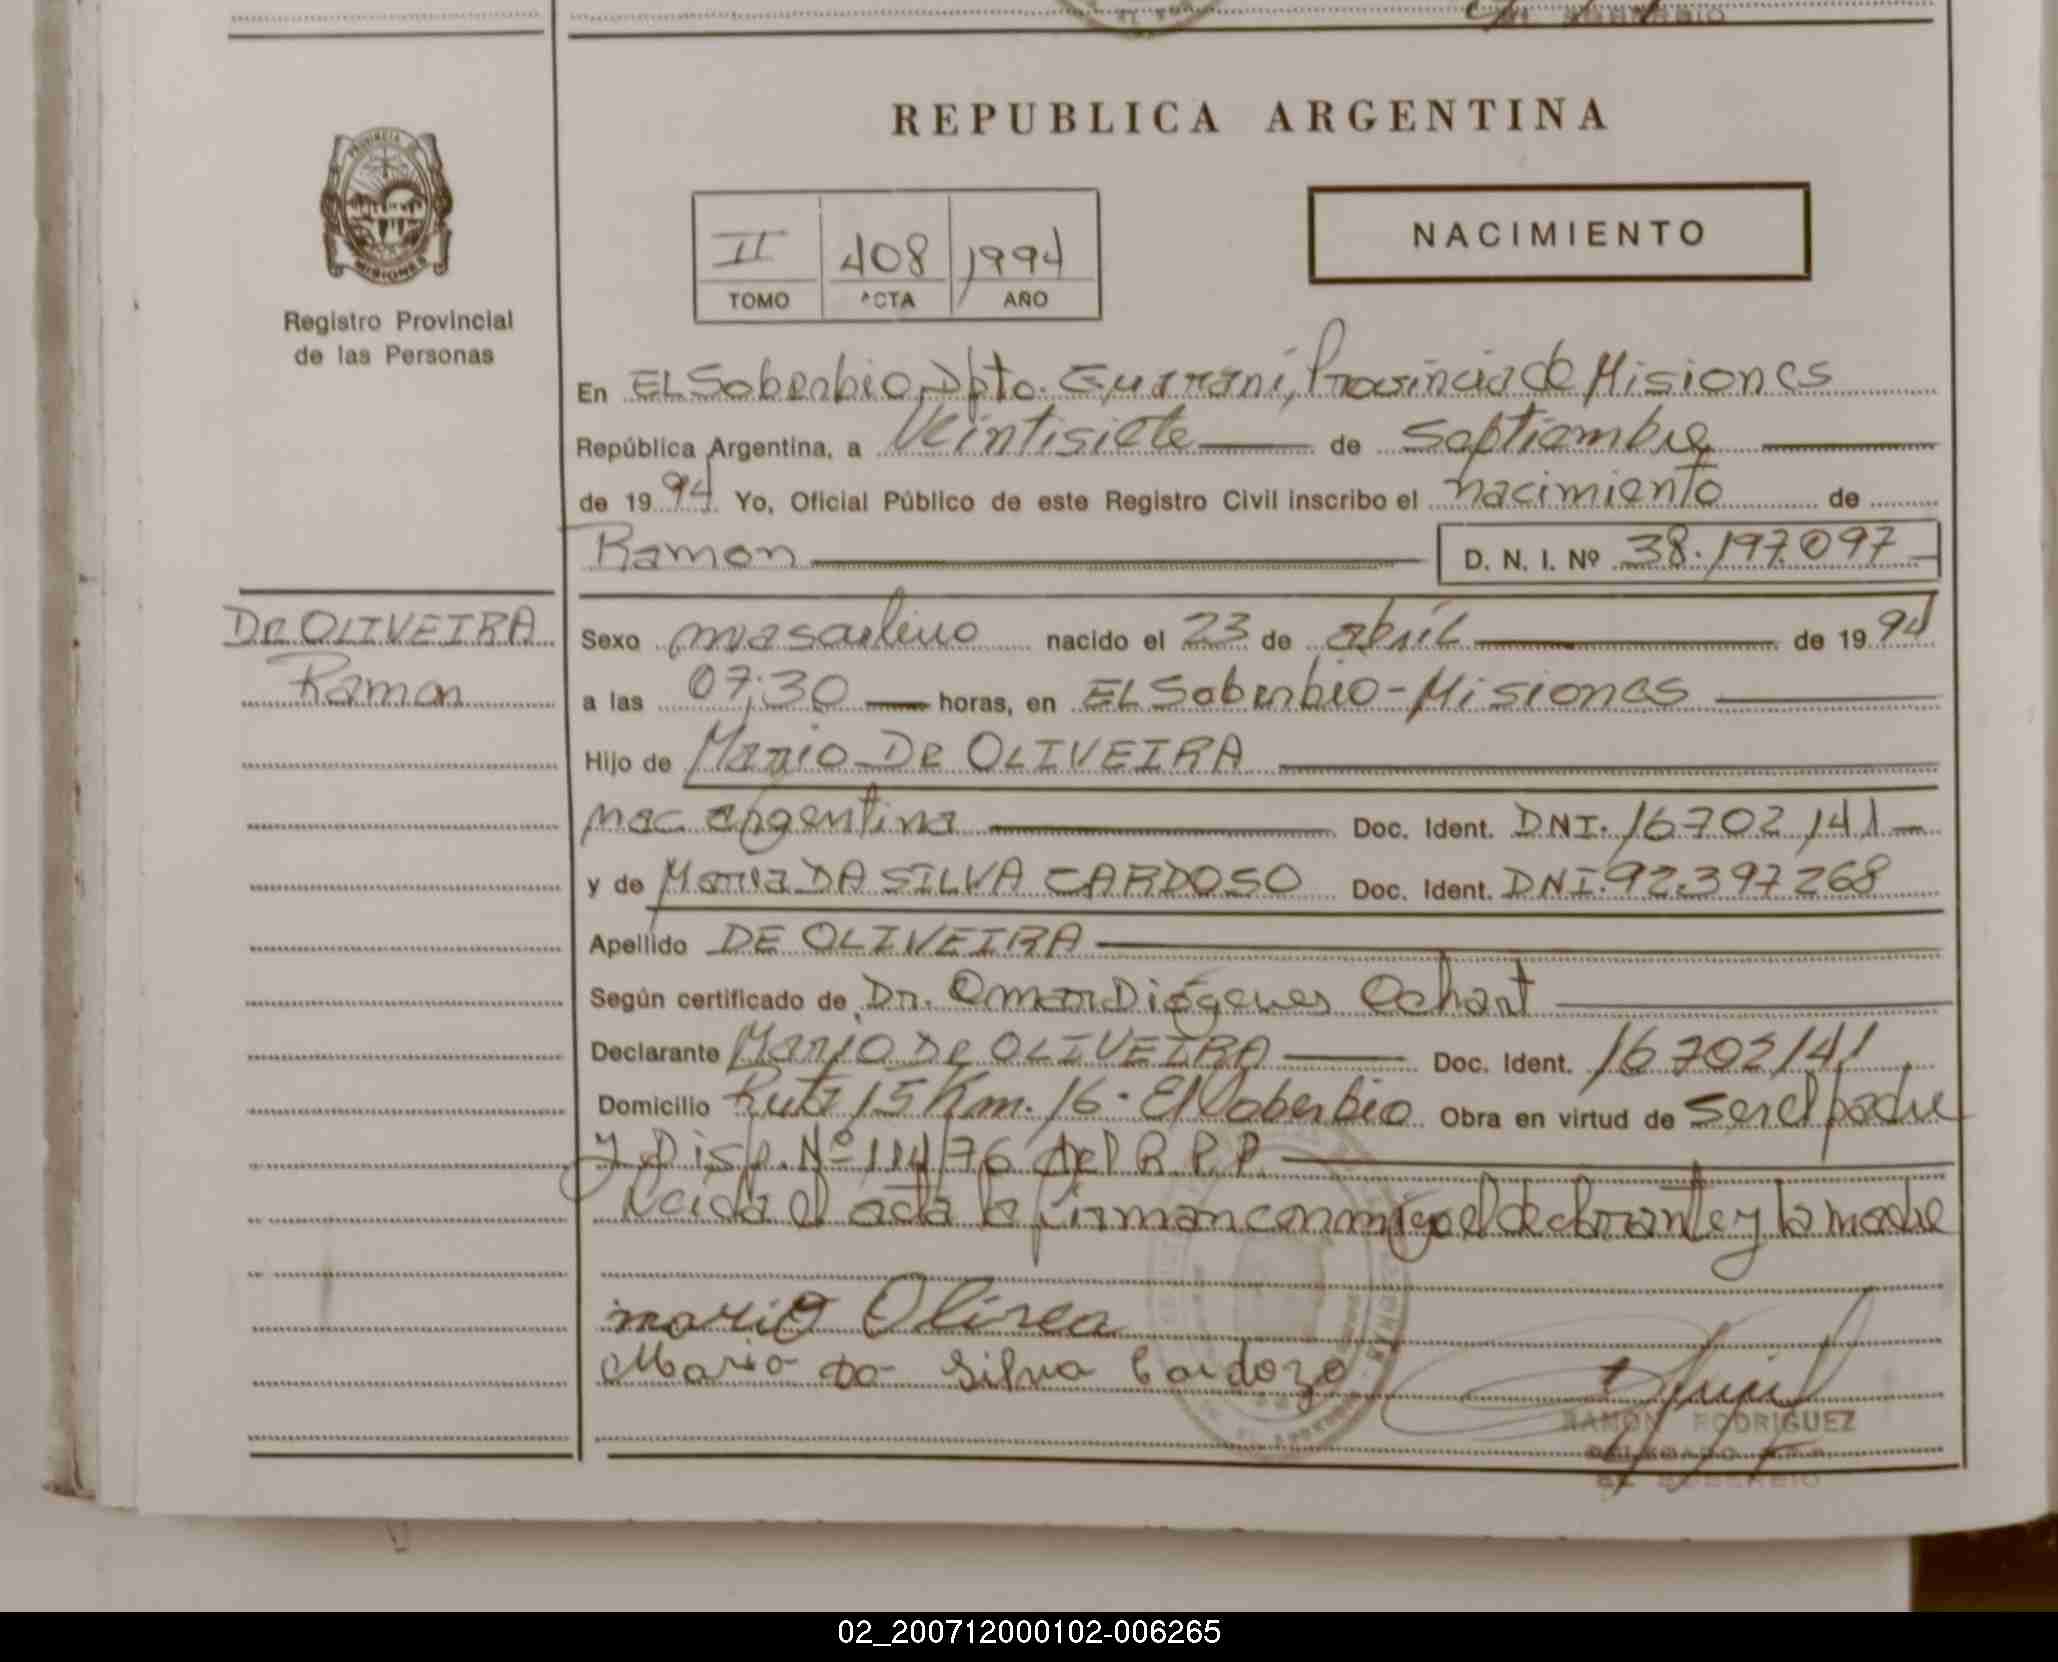 REPUBLICA ARGENTINA
PROVINCIA DE
MISIONES
Registro Provincial
de las Personas
II 408 1994
TOMO ACTA AÑO
NACIMIENTO
En EL Soberbio, Dpto. Guaraní, Provincia de Misiones
República Argentina, a Veintisiete de Septiembre
de 1994 Yo, Oficial Público de este Registro Civil inscribo el nacimiento de
Ramon D. N. I. Nº 38.197.097
De OLIVEIRA
Ramon
Sexo masculino nacido el 23 de abril de 1994
a las 07:30 horas, en EL Soberbio - Misiones
Hijo de Mario De OLIVEIRA
nac. argentina Doc. Ident. DNI. 16702141
y de Maria DA SILVA CARDOSO Doc. Ident. DNI. 92.397268
Apellido DE OLIVEIRA
Según certificado de Dr. Omar Diógenes Ochart
Declarante Mario De OLIVEIRA Doc. Ident. 16702141
Domicilio Ruta 15 Km. 16 - El Soberbio Obra en virtud de Ser el padre
y Disp. Nº 114/76 del R.P.P.
Leida el acta la firman conmigo el declarante y la madre
mario Olirea
Maria da Silva Cardozo
RAMON RODRIGUEZ
EL SOBERBIO
02_200712000102-006265